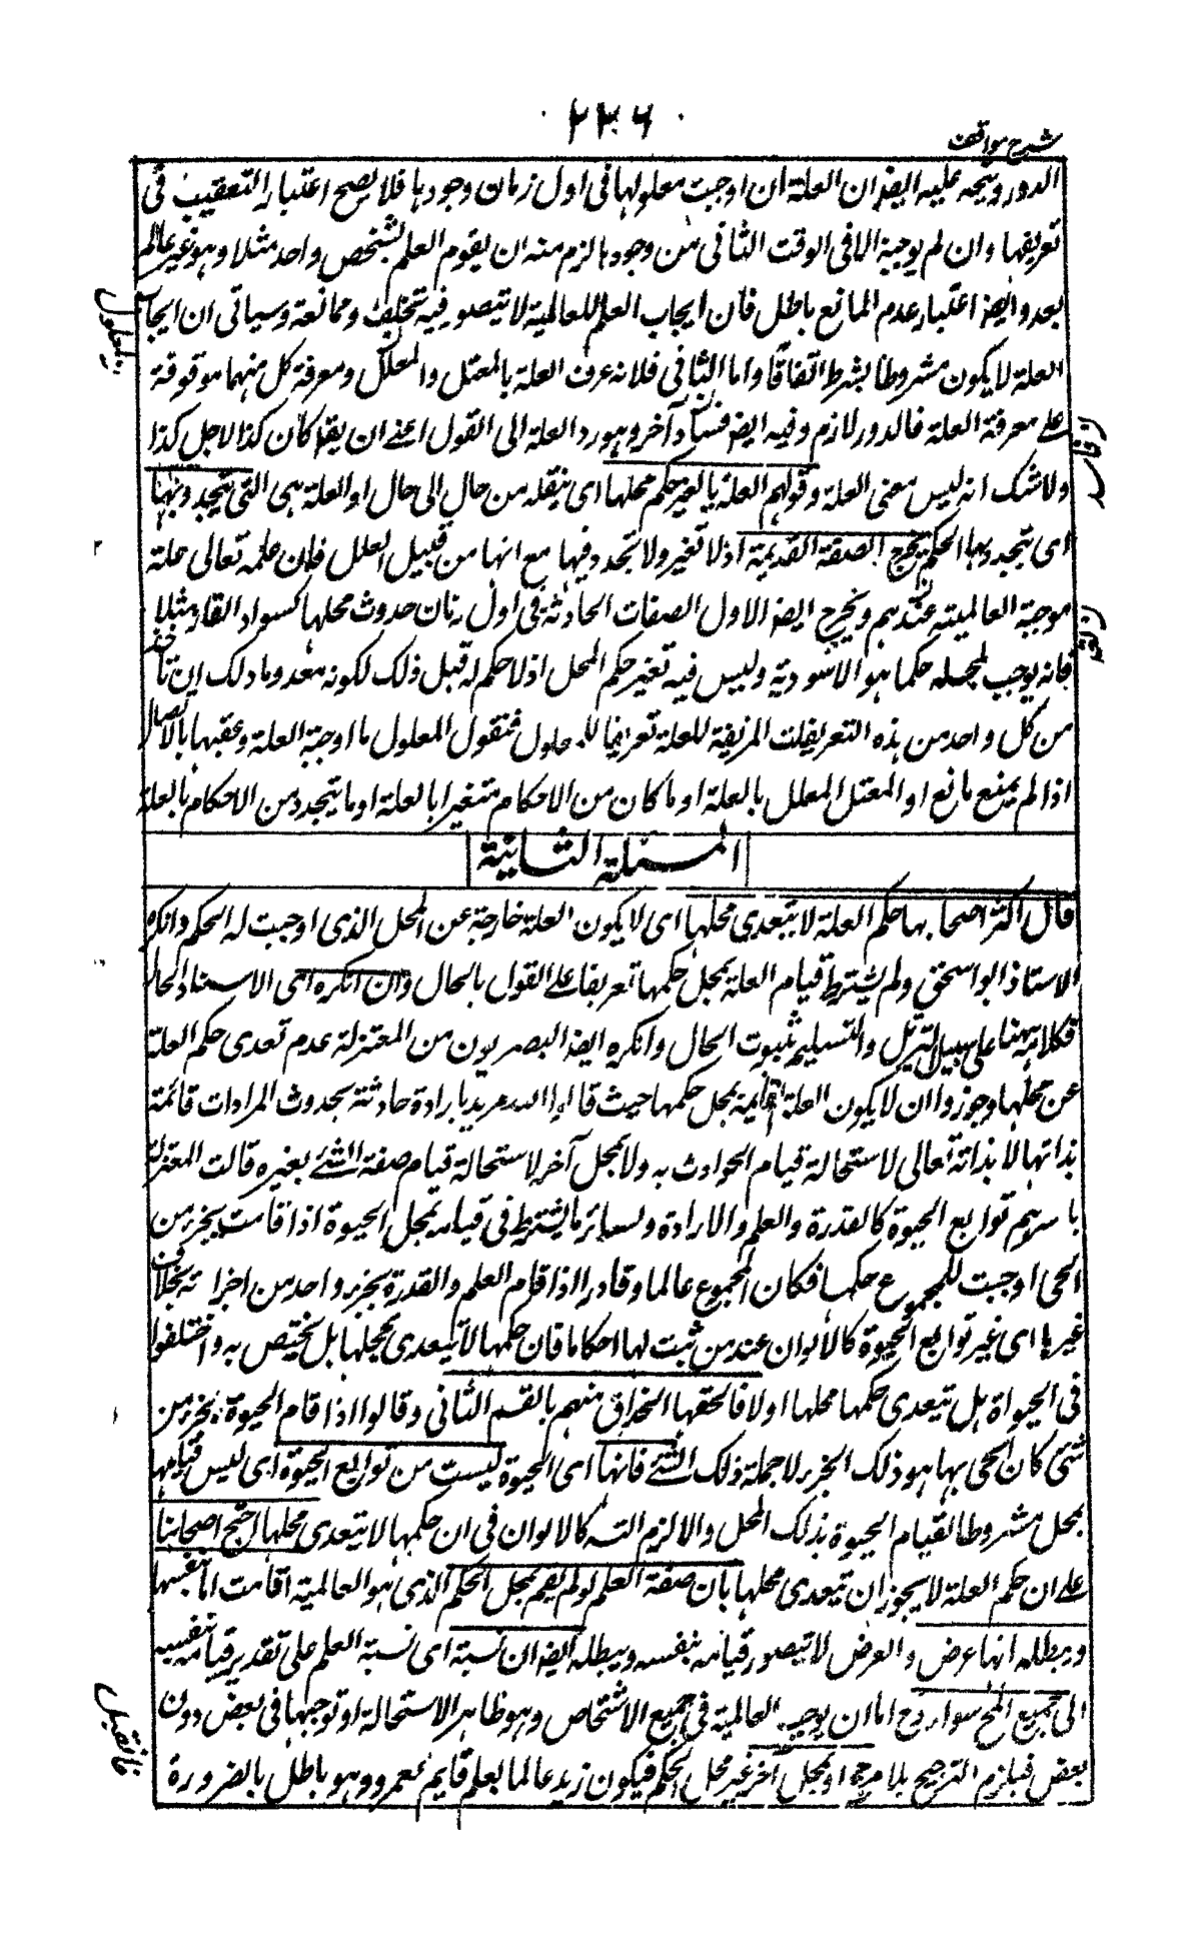 ٢٣٦
شرح مواقف
الدور ويتجه عليه ايضا ان العلة ان اوجبت معلولها فى اول زمان وجودها فلا يصح اعتبار التعقيب فى
تعريفها وان لم يوجبه الا فى الوقت الثانى من وجودها لزم منه ان يقوم العلم لشخص واحد مثلا وهو غير عالم
بعد وايضا اعتبار عدم المانع باطل فان ايجاب العلم للعالمية لا يتصور فيه تخلف وممانعة وسياتى ان ايجاب
العلة لا يكون مشروطا بشرط اتفاقا واما الثانى فلانه عرف العلة بالمعتل والمعلل ومعرفة كل منهما موقوفة
على معرفة العلة فالدور لازم وفيه ايضا فساد آخر وهو رد العلة الى القول اعنى ان يقال كان كذا لاجل كذا
ولا شك انه ليس معنى العلة وقولهم العلة ما يغير حكم محلها اى ينقله من حال الى حال او العلة هى التى يتجدد بها
اى يتجدد بها الحكم يخرج الصفة القديمة اذ لا تغير ولا تجدد فيها مع انها من قبيل العلل فان علمه تعالى علة
موجبة العالمية عندهم ويخرج ايضا الاول الصفات الحادثة فى اول زمان حدوث محلها كسواد القار مثلا
فانه يوجب لمحله حكما هو الاسودية وليس فيه تغير حكم المحل اذ لا حكم له قبل ذلك لكونه معدوما ولك ان تأخذ
من كل واحد من هذه التعريفات المزيفة للعلة تعريفا للمعلول فتقول المعلول ما اوجبته العلة وعقبها بالاتصال
اذا لم يمنع مانع او المعتل المعلل بالعلة او ما كان من الاحكام متغيرا بالعلة او ما يتجدد من الاحكام بالعلة
المسئلة الثانية
قال اكثر اصحابها حكم العلة لا يتعدى محلها اى لا يكون العلة خارجة عن المحل الذى اوجبت له الحكم وانكره
الاستاذ ابو اسحق ولم يشترط قيام العلة بمحل حكمها تعريفا على القول بالحال وان انكره اى الاستاذ الحال
فكلامه هنا على سبيل التنزل والتسليم ثبوت الحال وانكره ايضا البصريون من المعتزلة عدم تعدى حكم العلة
عن محلها وجوزوا ان لا يكون العلة قايمة بمحل حكمها حيث قالوا الله مريد بارادة حادثة بحدوث المرادات قائمة
بذاتها لا بذاته تعالى لاستحالة قيام الحوادث به ولا بمحل آخر لاستحالة قيام صفة الشئ بغيره قالت المعتزلة
باسرهم توابع الحيوة كالقدرة والعلم والارادة وسائر ما يشترط فى قيامه بمحل الحيوة اذا قامت بجزء من
الحى اوجبت للمجموع حكمها فكان المجموع عالما وقادرا اذا قام العلم والقدرة بجزء واحد من اجزائه بخلاف
غيرها اى غير توابع الحيوة كالالوان عند من ثبت لها احكاما فان حكمها لا يتعدى محلها بل يختص به واختلفوا
فى الحيواة هل يتعدى حكمها محلها او لا فالحقها الحذاق منهم بالقسم الثانى وقالوا اذا قام الحيوة بجزء من
شئ كان الحى بها هو ذلك الجزء لا جملة ذلك الشئ فانها اى الحيوة ليست من توابع الحيوة اى ليس قيامها
بمحل مشروطا لقيام الحيوة بذلك المحل والا لزم التسـ كالالوان فى ان حكمها لا يتعدى محلها احتج اصحابنا
على ان حكم العلة لا يجوز ان يتعدى محلها بان صفة العلم لو لم يقم بمحل الحكم الذى هو العالمية اقامت اما بنفسها
ويبطله انها عرض والعرض لا يتصور قيامه بنفسه ويبطله ايضا ان نسبة اى نسبة العلم على تقدير قيامه بنفسه
الى جميع المحال سواء وح اما ان يوجبه العالمية فى جميع الاشخاص وهو ظاهر الاستحالة او توجبها فى بعض دون
بعض فيلزم الترجيح بلا مرجح او بمحل آخر غير محل الحكم فيكون زيد عالما بعلم قايم بعمرو وهو باطل بالضرورة